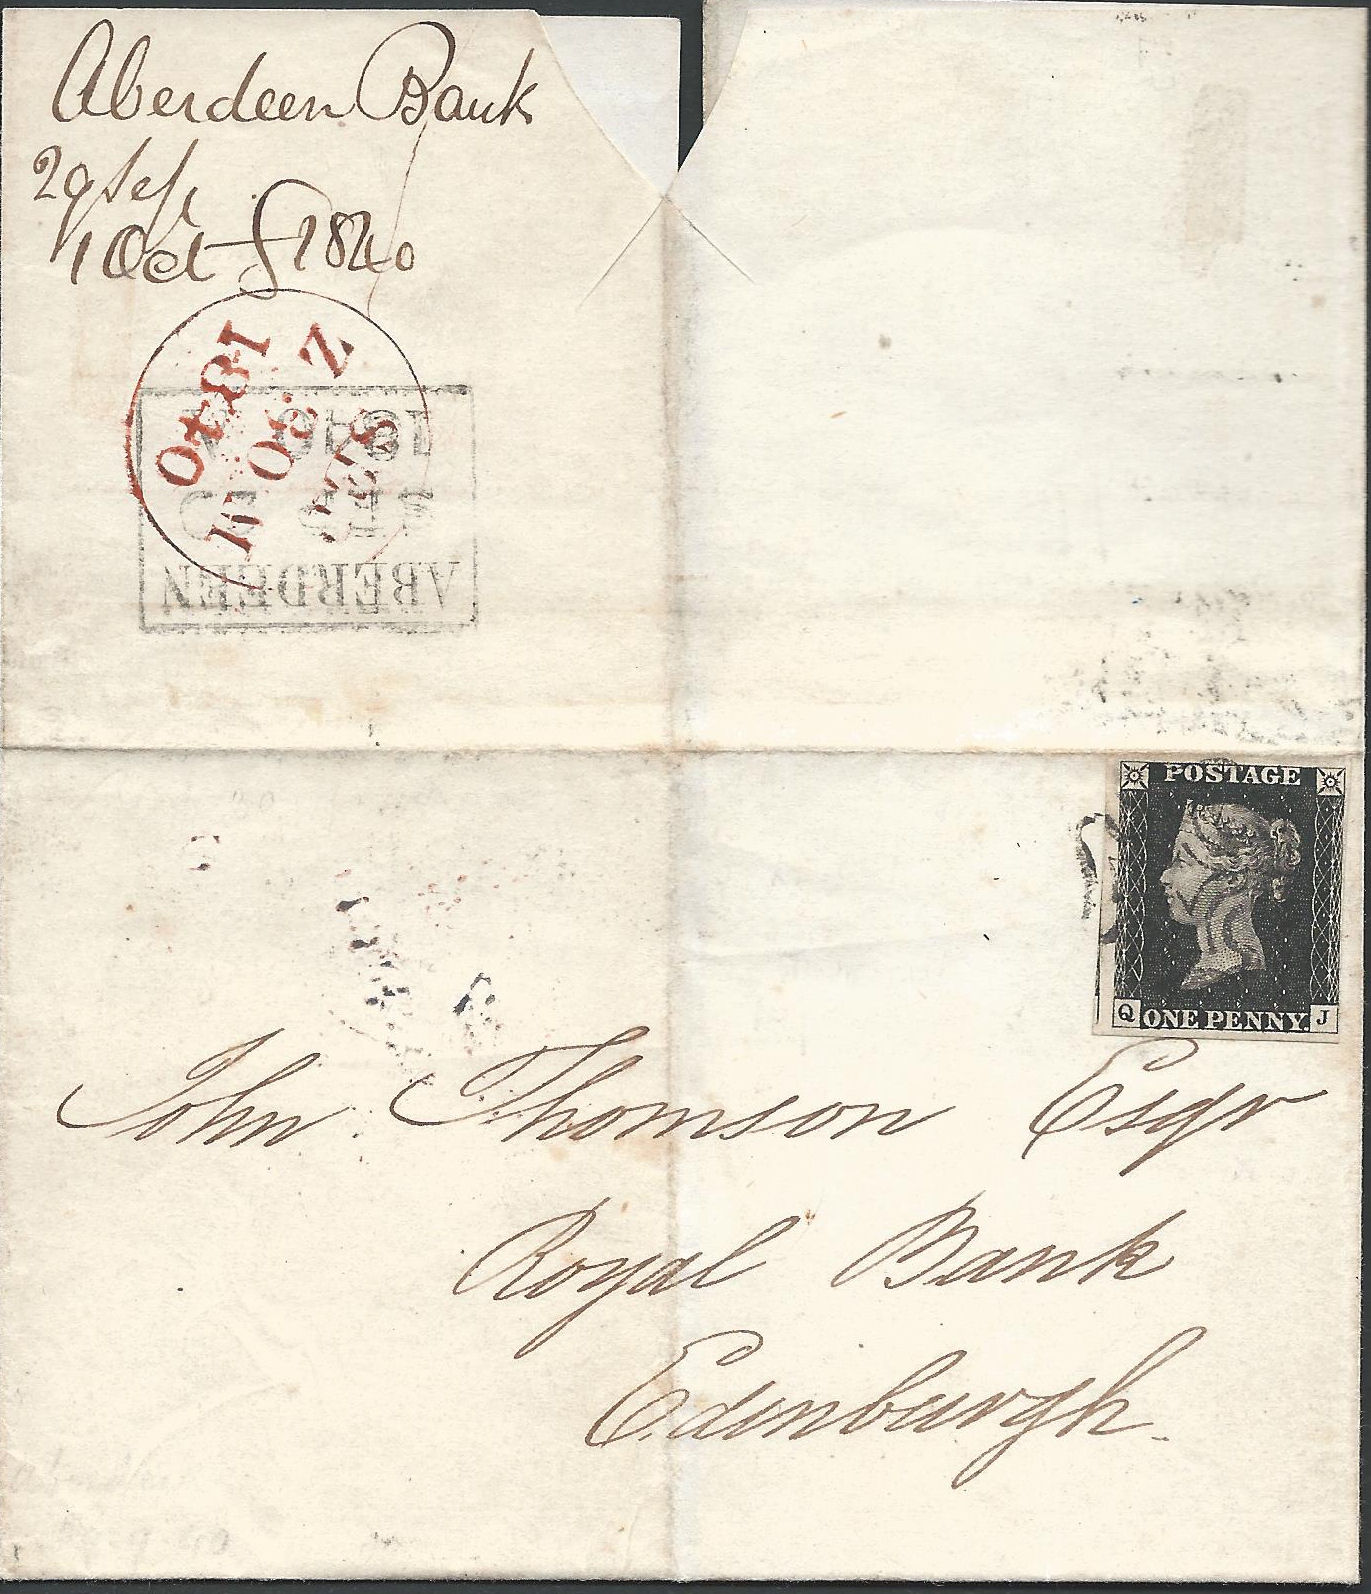 Aberdeen Bank
29 Sep
1 Oct 1840
1840
ABERDEEN
POSTAGE
Q ONE PENNY. J
John Thomson Esqr
Royal Bank
Edinburgh